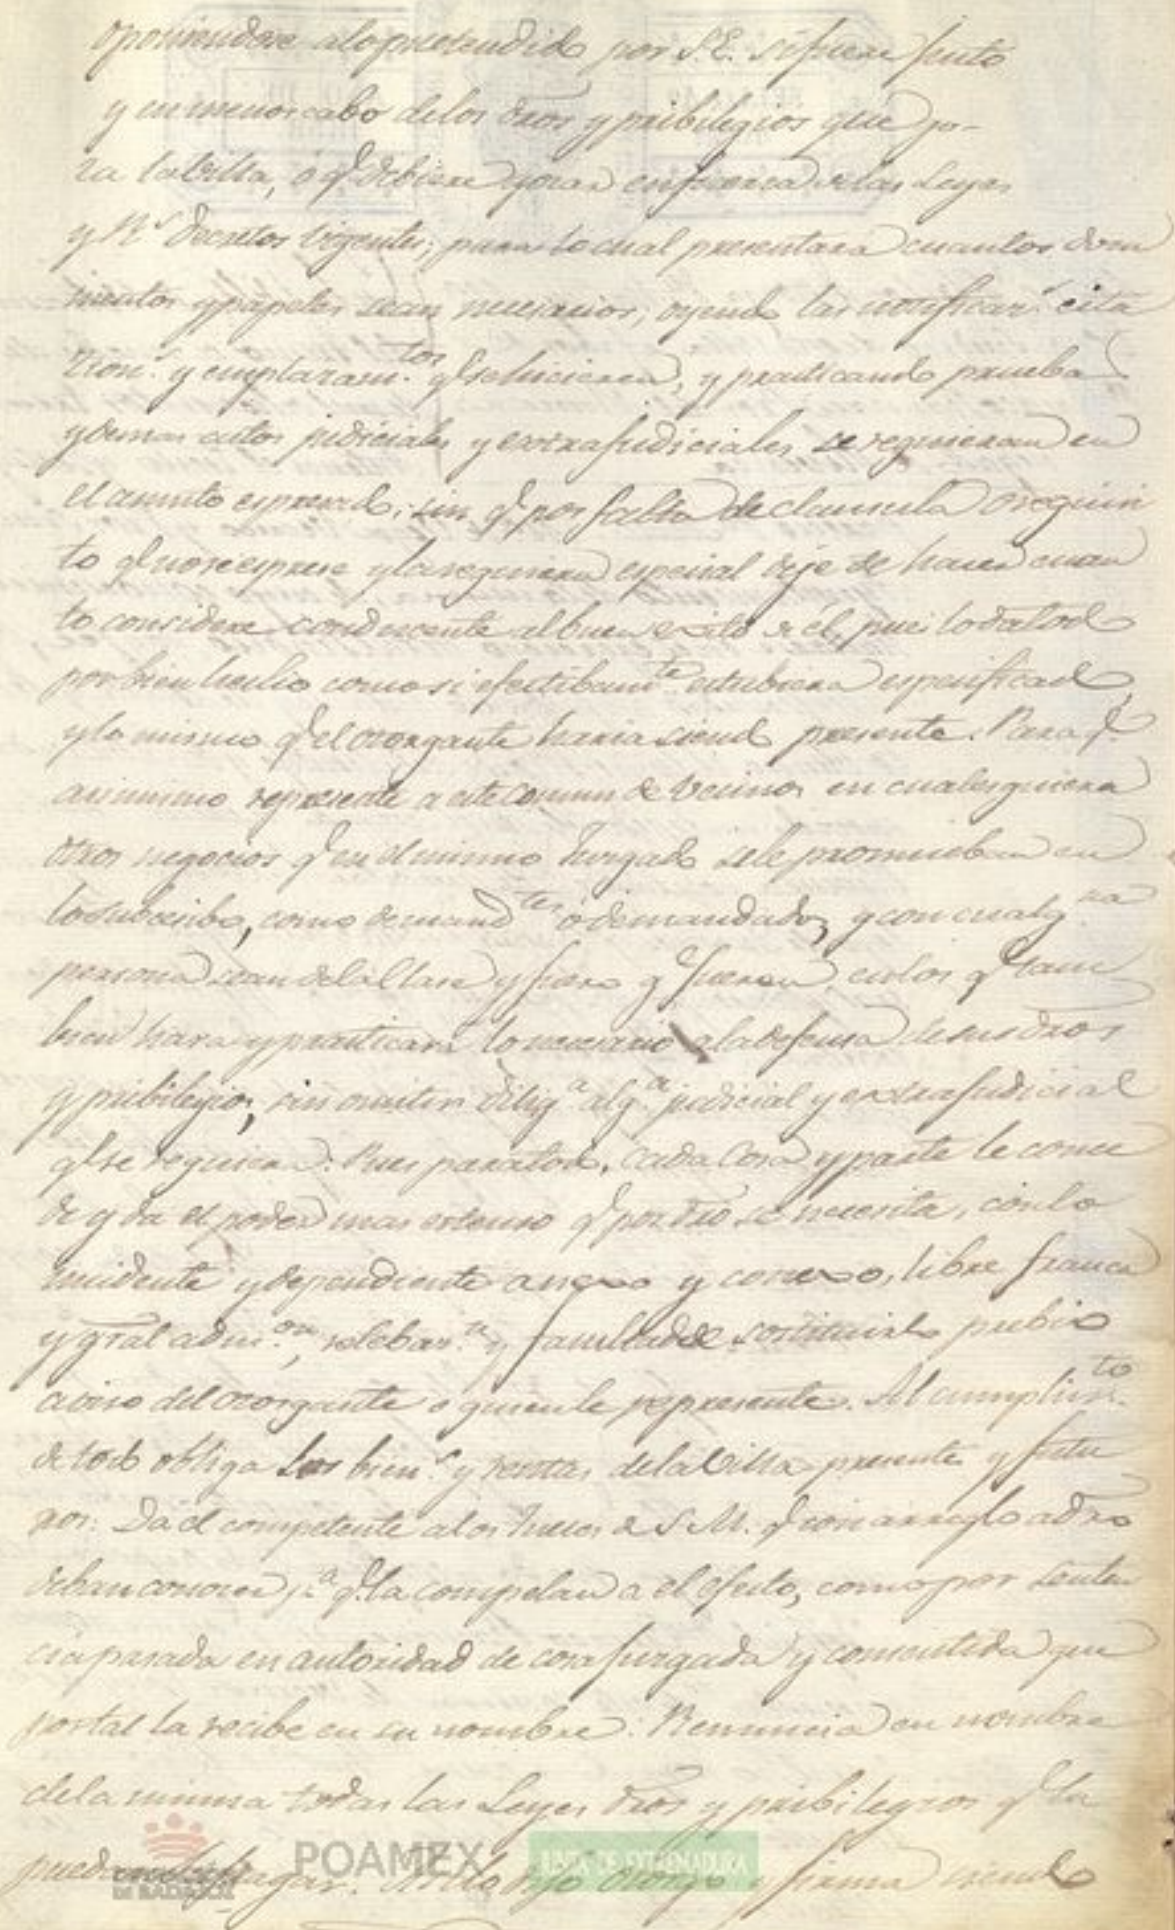 oponiendose a lo pretendido por S.E. si fuere justo
y en menoscabo de los dros y pribilegios que go-
za la Villa, ó q.e debiere gozar en fuerza de las Leyes
y R.s Decretos vigentes; para lo cual presentara cuantos docu
mentos y papeles sean necesarios, oyendo las notificac.s cita
cion.s y emplazam.tos q.e se hicieren, y practicando prueba
y demas actos judiciales y extrajudiciales se requieran en
el asunto espresado; sin q.e por falta de clausula o requisi
to q.e no se esprese y la requiera especial deje de hacer cuan
to considere conducente al buen exito de él, pues lo da todo
por bien hecho como si efectibam.te estubiera especificado
y lo mismo q.e el otorgante haria siendo presente. Para q.e
asimismo represente a este comun de vecinos en cualesquiera
otros negocios q.e en el mismo Juzgado se le promueban en
lo subcesibo, como demand.tes ó demandados, y con cualq.ra
persona sean de la clase y fuero q.e fueren, en los q.e tam
bien hara y practicara lo necesario a la defensa de sus dros
y pribilegios, sin omitir dilig.a alg.a judicial y extrajudicial
q.e se requiera. Pues para todo, cada cosa y parte le conce
de y da el poder mas estenso q.e por dro se necesita, con lo
incidente y dependiente anexo y conexo, libre franca
y gral adm.on, relebac.n y facultad de sostituirlo prebio
aviso del otorgante o quien le represente. Al cumplim.to
de todo obliga los bien.s y rentas de la Villa presente y futu
ros. Da el competente a los Jueces de S.M. q.e con arreglo a dro
deban conocer p.a q.e la compelan a el efecto, como por senten
cia pasada en autoridad de cosa juzgada y consentida que
por tal la recibe en su nombre. Renuncia en nombre
de la misma todas las Leyes dros y pribilegios q.e la
puedan otorgo y firma siendo
DE BADAJOZ
POAMEX
JUNTA DE EXTREMADURA